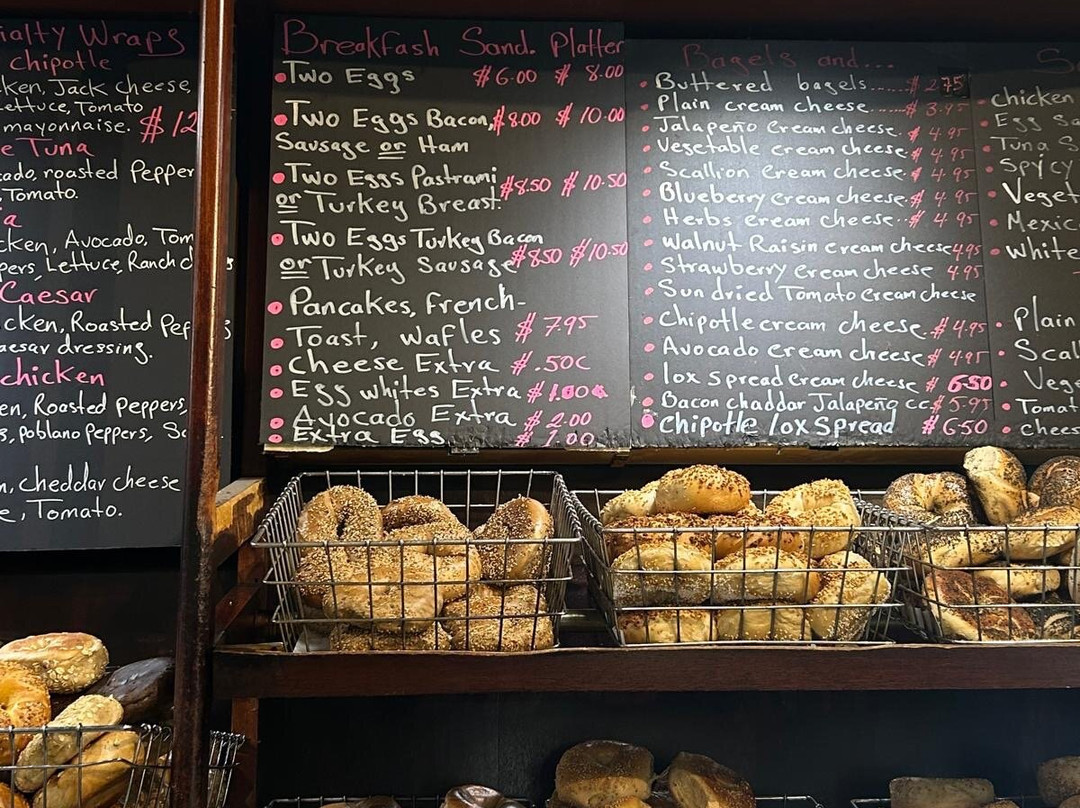 ialty Wraps
chipotle
ken, Jack cheese
Lettuce, Tomato
mayonnaise. $12
e Tuna
cado, roasted Pepper
, Tomato.
a
cken, Avocado, Tom
pers, Lettuce, Ranch d s
Caesar
cken, Roasted Pep s
aesar dressing.
chicken
en, Roasted Peppers,
s, poblano Peppers, Sa
n, cheddar cheese
e, Tomato.
Breakfash Sand. Platter
Two Eggs $6.00 $8.00
Two Eggs Bacon, $8.00 $10.00
Sausage or Ham
Two Eggs Pastrami $8.50 $10.50
or Turkey Breast.
Two Eggs Turkey Bacon
or Turkey Sausage $8.50 $10.50
Pancakes, french-
Toast, wafles $7.95
Cheese Extra $.50C
Egg whites Extra $1.00
Avocado Extra $2.00
Extra Egg $1.00
Bagels and...
Buttered bagels..... $2.75
Plain cream cheese.... $3.95
Jalapeño cream cheese. $4.95
Vegetable cream cheese. $4.95
Scallion cream cheese. $4.95
Blueberry cream cheese. $4.95
Herbs cream cheese.. $4.95
Walnut Raisin cream cheese 4.95
Strawberry cream cheese 4.95
Sun dried Tomato cream cheese
Chipotle cream cheese. $4.95
Avocado cream cheese $4.95
lox spread cream cheese $6.50
Bacon chaddar Jalapeño cc $5.95
Chipotle lox Spread $6.50
S
chicken
Egg Sa
Tuna S
Spicy
Veget
Mexic
White
Plain
Scall
Vege
Tomat
chees